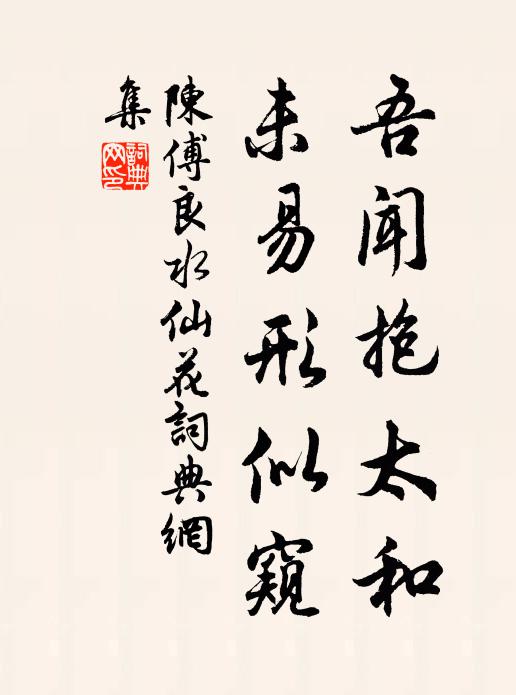 吾闻抱太和
未易形似窥
陳傅良水仙花詞典網
集
詞典網印